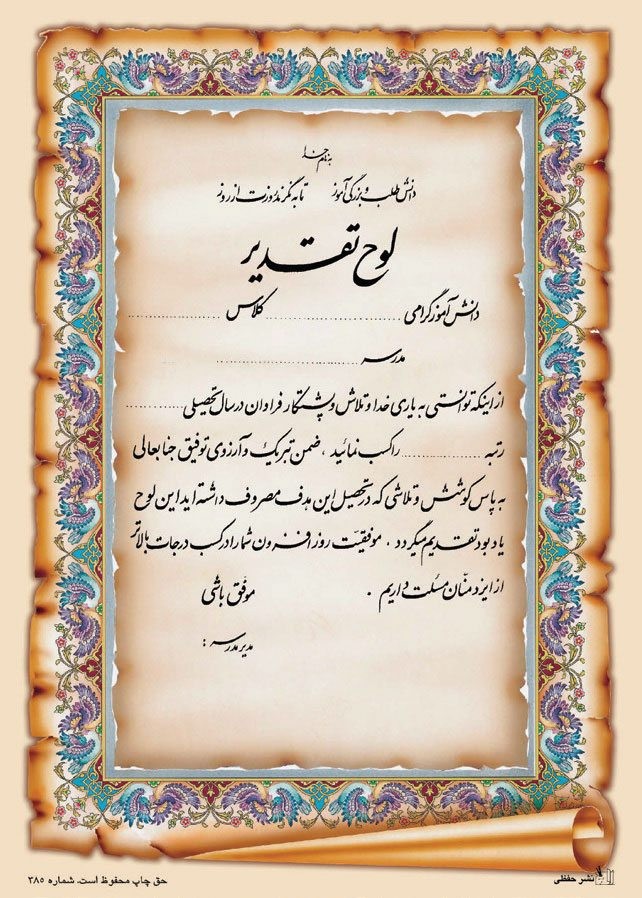 به نام خدا
دانش طلب و بزرگی آموز تا به نگرند روزت از روز
لوح تقدیر
دانش آموز گرامی .......... کلاس ..........
مدرسه ..........
از اینکه توانستی به یاری خدا و تلاش و پشتکار فراوان در سال تحصیلی ..........
رتبه .......... را کسب نمائید ، ضمن تبریک و آرزوی توفیق جنابعالی
به پاس کوشش و تلاشی که در تحصیل این هدف مصروف داشته اید این لوح
یادبود تقدیم میگردد ، موفقیت روز افزون شما را در کسب درجات بالاتر
از ایزد منّان مسئلت داریم .
موفق باشی
مدیر مدرسه :
نشر حفظی
حق چاپ محفوظ است. شماره ۳۸۵